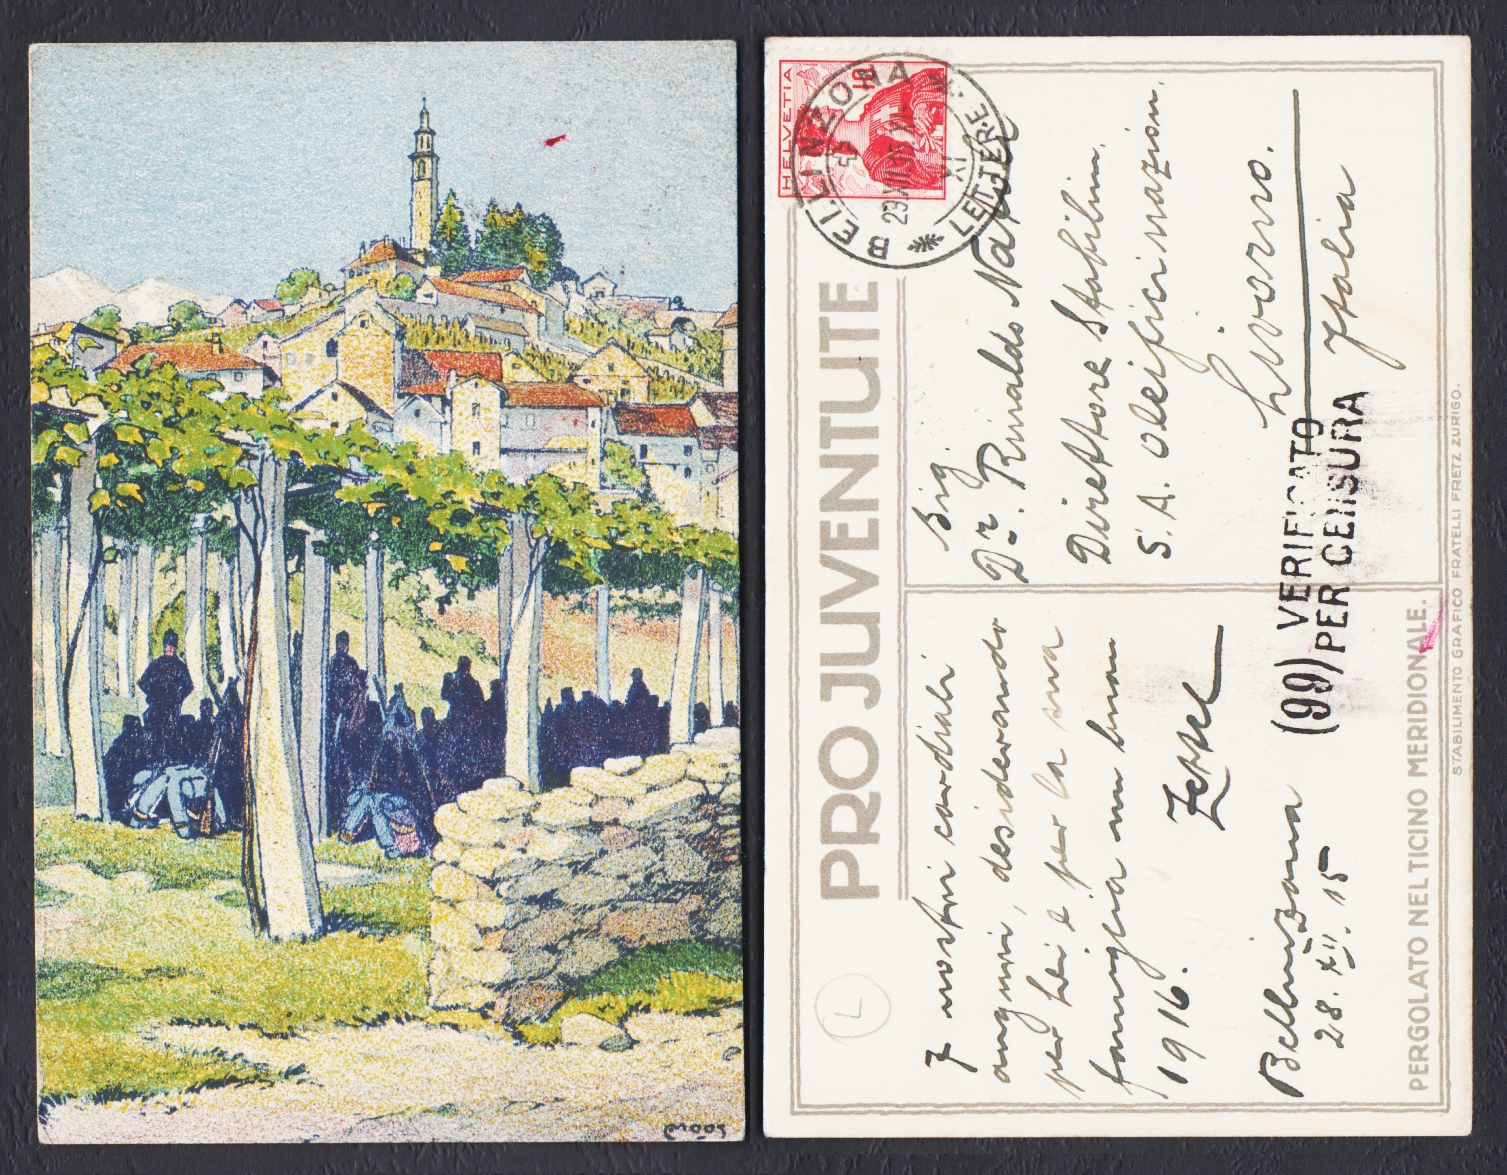 moos
HELVETIA
10
BELLINZONA
LETTERE
XI
PRO JUVENTUTE
Sig.
Dr. Rinaldo
Direttore Stabilim.
S. A. Oleifici nazion.
Livorno.
Italia
(99) VERIFICATO
PER CENSURA
I nostri cordiali
auguri, desiderando
per Lei e per la sua
famiglia un buon
1916.
Bellinzona
28. XII. 15
PERGOLATO NEL TICINO MERIDIONALE.
STABILIMENTO GRAFICO FRATELLI FRETZ ZURIGO.
L